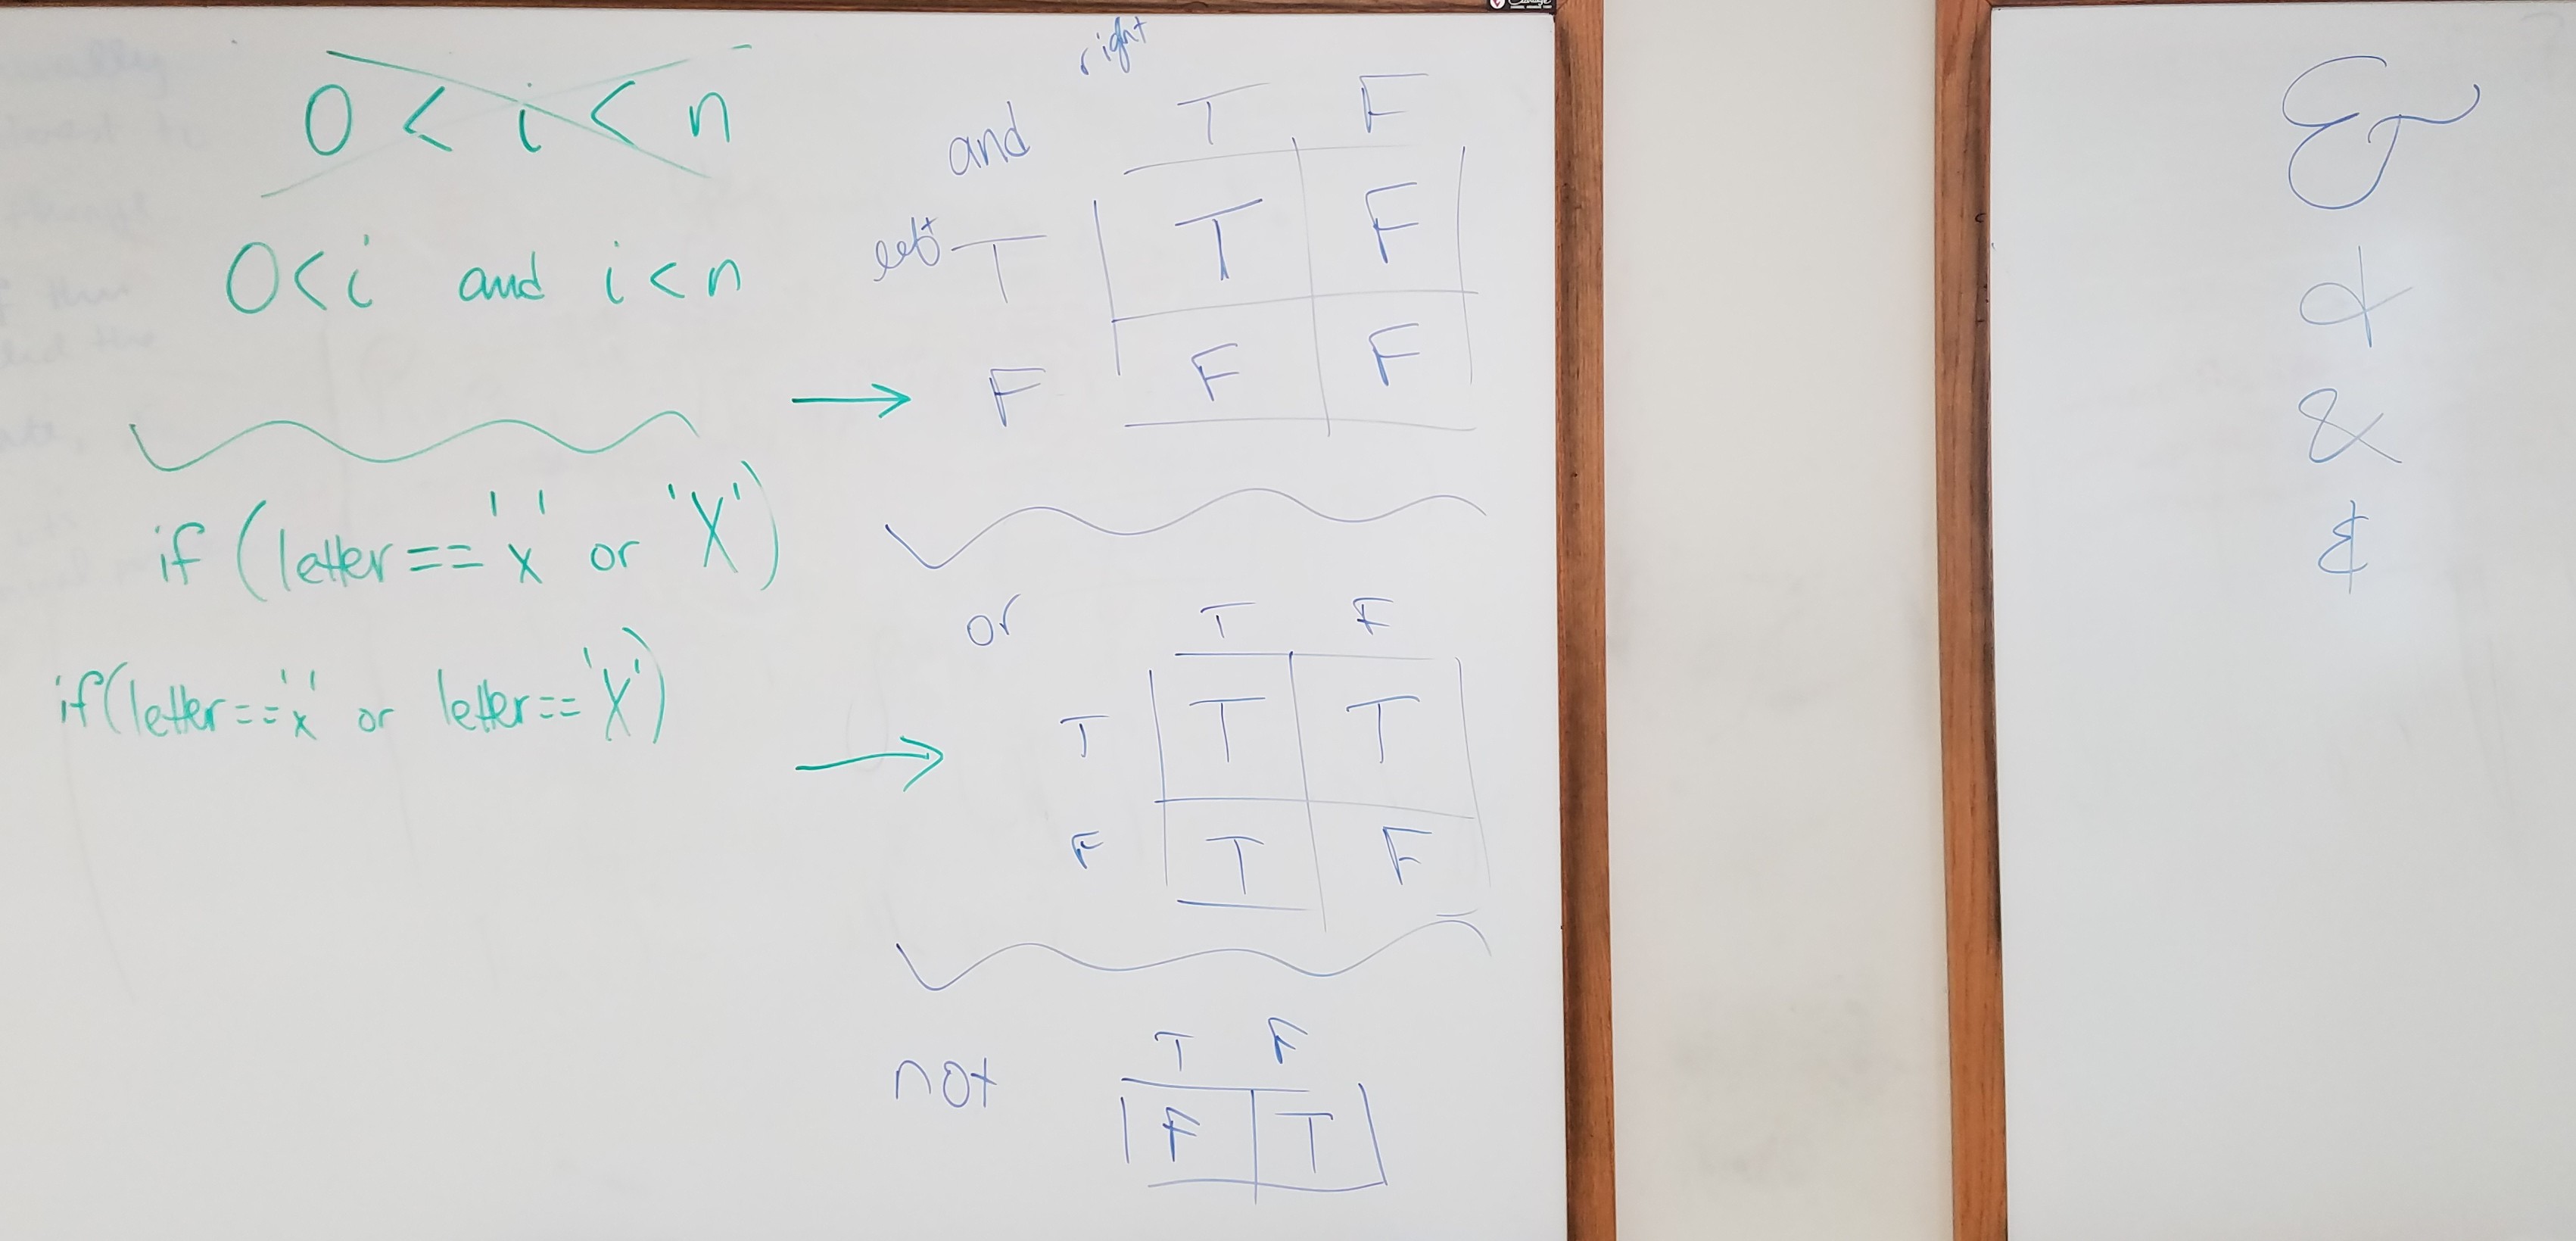 0 < i < n
0<i and i<n
if (letter == 'x' or 'X')
if(letter=='x' or letter=='X')
right
and T F
left T T F
F F F
or T F
T T T
F T F
not T F
F T
&
&
&
&